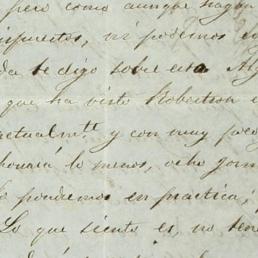 pero como aunque hagan
ispuestos, ni podemos en
da te digo sobre esta
que ha visto Robertson
actualmte y con muy poco
lo menos, ocho
lo pondremos en practica,
Lo que siento es, no ten